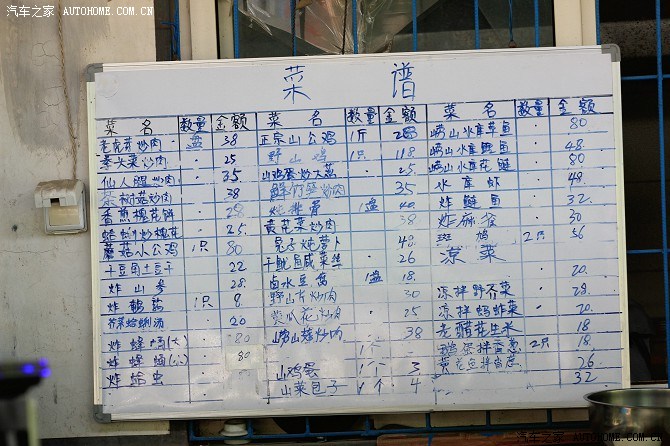 汽车之家 AUTOHOME.COM.CN
汽车之家 AUTOHOME.COM.CN
菜 谱
菜 名 数量 金额
老虎芽炒肉 盘 38
拳头菜炒肉 25
仙人掌炒肉 35
茶树菇炒肉 38
香煎槐花饼 28
蛤蜊炒槐花 25
蘑菇小公鸡 1只 80
干豆角土豆干 22
炸山 28
炸鹌鹑 1只 8
芥菜蛤蜊汤 20
炸蜂蛹(大) 80
炸蜂蛹(小) 80
炸 虫
菜 名 数量 金额
正宗山公鸡 1斤 28
野山鸡 1只 118
山鸡蛋炒大葱 25
鲜竹笋炒肉 35
炖排骨 1盘 40
黄花菜炒肉 38
兔子炖萝卜 48
干鱿鱼咸菜丝 26
卤水豆腐 1盘 18
野山芹炒肉 30
炒瓜花炒肉 25
崂山菇炒肉 38
1个
山鸡蛋 1个 3
山菜包子 1个 4
菜 名 数量 金额
崂山水库草鱼 80
崂山水库鲤鱼 48
崂山水库花鲢 80
水库虾 48
炸鲢鱼 32
炸麻雀 30
斑鸠 2只 56
凉菜
20
凉拌野芥菜 28
凉拌蚂蚱菜 20
老醋花生米 18
鹅蛋拌香葱 2只 18
黄花 26
32
汽车之家 AUTOHOME.COM.CN